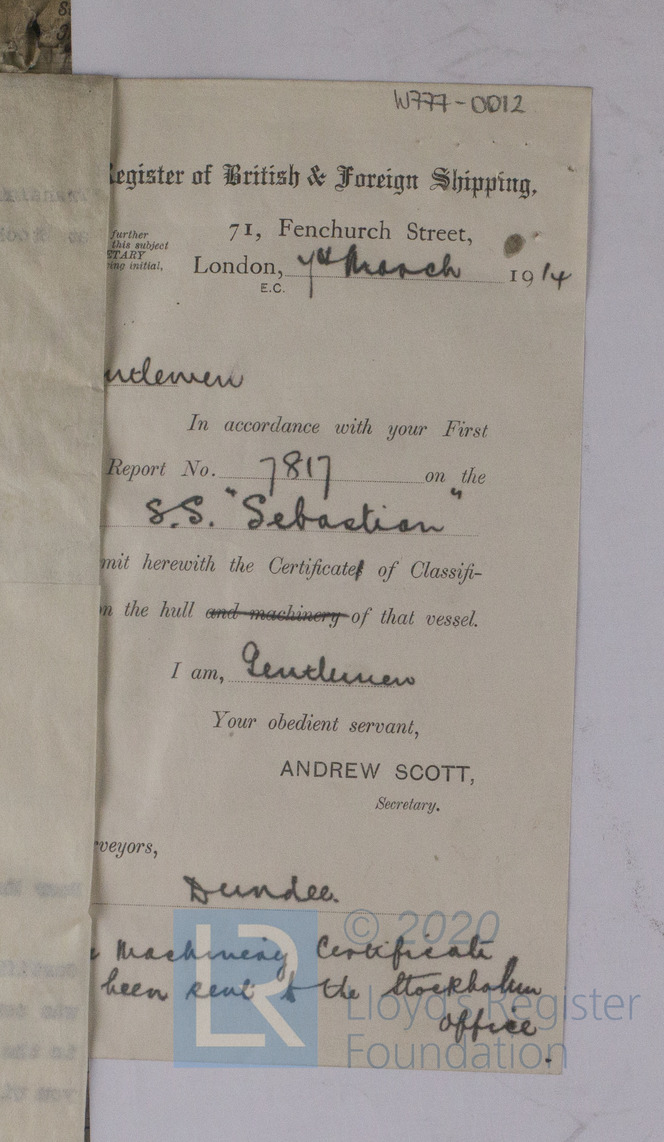 W777-0012
Register of British & Foreign Shipping,
71, Fenchurch Street,
further
this subject
ETARY
ing initial,
London, 7th March 1914
E.C.
ntlemen
In accordance with your First
Report No. 7817 on the
S.S. "Sebastian"
mit herewith the Certificate of Classifi-
n the hull and machinery of that vessel.
I am, Gentlemen
Your obedient servant,
ANDREW SCOTT,
Secretary.
veyors,
Dundee.
e Machinery Certificate
been sent to the Stockholm
office
LR
© 2020
Lloyd's Register
Foundation